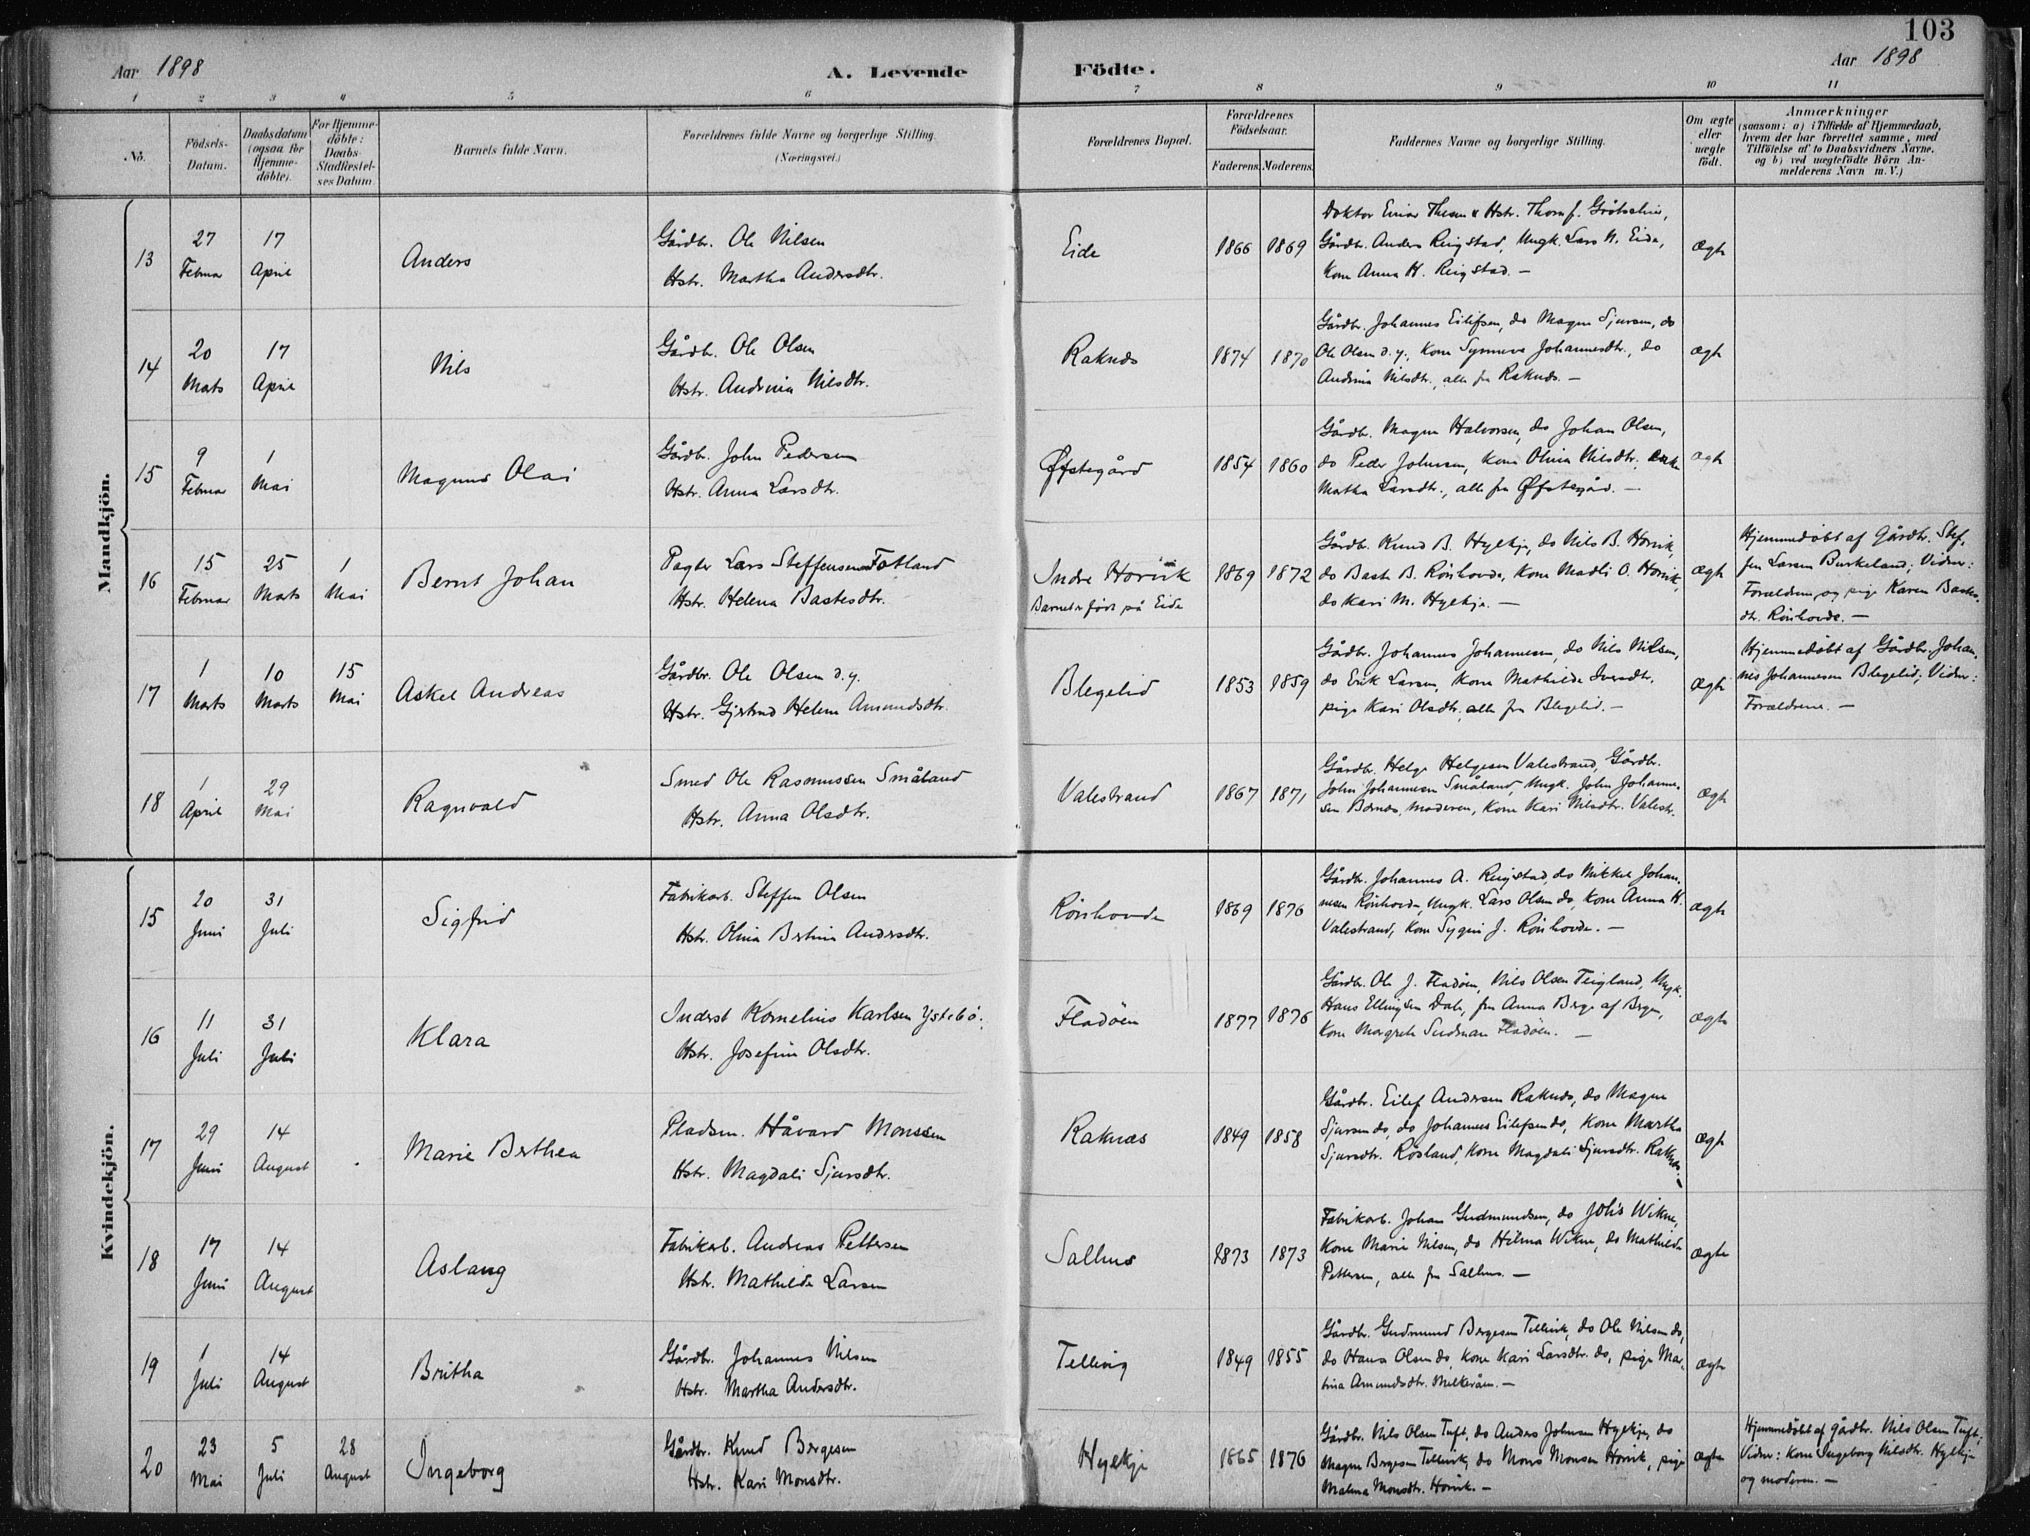 103
Aar 1898
A. Levende Födte.
Aar 1898
1 2 3 4 5 6 7 8 9 10 11
No.
Födsels-
Datum.
Daabsdatum
(ogsaa for
Hjemme-
döbte).
For Hjemme-
döbte:
Daabs-
Stadfæstel-
ses Datum.
Barnets fulde Navn.
Forældrenes fulde Navne og borgerlige Stilling.
(Næringsvei.)
Forældrenes Bopæl.
Forældrenes
Födselsaar.
Faderens. Moderens.
Faddernes Navne og borgerlige Stilling.
Om ægte
eller
uægte
födt.
Anmærkninger
(saasom: a) i Tilfælde af Hjemmedaab,
hvem der har forrettet samme, med
Tilföielse af to Daabsvidners Navne,
og b) ved uægtefödte Börn An-
melderens Navn m. V.)
Mandkjön.
13
27 Februar
17 April
Anders
Gårdbr. Ole Nilsen
Hstr. Martha Andersdtr.
Eide
1866 1869
Doktor Einar Thesen & Hstr. Thora f.
Gårdbr. Anders Ringstad, Ungk. Lars N. Eide,
Kone Anna H. Ringstad. —
ægte
14
20 Marts
17 April
Nils
Gårdbr. Ole Olsen
Hstr. Andrina Nilsdtr.
Raknes
1874 1870
Gårdbr. Johannes Eilefsen, do Magne Sjursen, do
Ole Olsen d.y., Kone Synneva Johannesdtr., do
Andrina Nilsdtr., alle fra Raknes. —
ægte
15
9 Februar
1 Mai
Magnus Olai
Gårdbr. John Pedersen
Hstr. Anna Larsdtr.
Øfstegård
1854 1860
Gårdbr. Magne Halvorsen, do Johan Olsen,
do Peder Johnsen, Kone Olina Nilsdtr., enke
Martha Larsdtr., alle fra Øfstegård. —
ægte
16
15 Februar
25 Marts
1 Mai
Bernt Johan
Pagter Lars Steffensen Fotland
Hstr. Helena Bastesdtr.
Indre Horvik
Barnet er født på Eide
1869 1872
Gårdbr. Knud B. Hylkje, do Nils B. Horvik,
do Baste B. Rönhovde, Kone Madli O. Horvik,
do Kari M. Hylkje. —
ægte
Hjemmedöbt af Gårdbr. Stef-
fen Larsen Birkeland; Vidner:
Forældrene og pige Karen Bastes-
dtr. Rönhovde. —
17
1 Marts
10 Marts
15 Mai
Askel Andreas
Gårdbr. Ole Olsen d.y.
Hstr. Gjertrud Helene Amundsdtr.
Blegelid
1853 1859
Gårdbr. Johannes Johannesen, do Nils Nilsen,
do Erik Larsen, Kone Mathilde Iversdtr.
pige Kari Olsdtr. alle fra Blegelid. —
ægte
Hjemmedöbt af Gårdbr. Johan-
nes Johannesen Blegelid; Vidner:
Forældrene. —
18
1 April
29 Mai
Ragnvald
Smed Ole Rasmussen Småland
Hstr. Anna Olsdtr.
Valestrand
1867 1871
Gårdbr. Helge Helgesen Valestrand, Gårdbr.
John Johannesen Småland, Ungk. John Johanne-
sen Bernes, Moderen, Kone Kari Nilsdtr. Valestr.
ægte
Kvindekjön.
15
20 Juni
31 Juli
Sigfrid
Fabrikarb. Steffen Olsen
Hstr. Olina Bertina Andersdtr.
Rönhovde
1869 1876
Gårdbr. Johannes A. Ringstad, do Mikkel Johan-
nesen Rönhovde, Ungk. Lars Olsen do, Kone Anna H.
Valestrand, Kone Sygni J. Rönhovde. —
ægte
16
11 Juli
31 Juli
Klara
Inderst Kornelius Karlsen Ystebö.
Hstr. Josefine Olsdtr.
Fladöen
1877 1876
Gårdbr. Ole J. Fladöen, Nils Olsen Teigland, Ungk.
Hans Ellingsen Dale, fru Anna Berge af Bergen,
Kone Margrete Sudman Fladöen. —
ægte
17
29 Juni
14 August
Marie Berthea
Pladsm. Håvard Monssen
Hstr. Magdali Sjursdtr.
Raknæs
1849 1858
Gårdbr. Eilef Andersen Raknes, do Magne
Sjursen do, do Johannes Eilefsen do, Kone Martha
Sjursdtr. Rosland, Kone Magdali Sjursdtr. Raknes. —
ægte
18
17 Juni
14 August
Aslaug
Fabrikarb. Andreas Pettersen
Hstr. Mathilde Larsen
Salhus
1873 1873
Fabrikarb. Johan Gudmundsen, do Johs Wikne,
Kone Marie Nilsen, do Hilma Wikne, do Mathilde
Pettersen, alle fra Salhus. —
ægte
19
1 Juli
14 August
Britha
Gårdbr. Johannes Nilsen
Hstr. Martha Andersdtr.
Tellevig
1849 1855
Gårdbr. Gudmund Bergesen Tellevik, do Ole Nilsen do,
do Hans Olsen do, Kone Kari Larsdtr. do, pige Mar-
tina Amundsdtr. Milkeråen. —
ægte
20
23 Mai
5 Juli
28 August
Ingeborg
Gårdbr. Knud Bergesen
Hstr. Kari Monsdtr.
Hylkje
1865 1876
Gårdbr. Nils Olsen Tuft, do Anders Johnsen Hylkje, do
Magne Bergesen Tellevik, do Mons Monsen Horvik, pige
Malena Monsdtr. Horvik. —
ægte
Hjemmedöbt af gårdbr. Nils Olsen Tuft;
Vidner: Kone Ingeborg Nilsdtr. Hylkje
og moderen. —